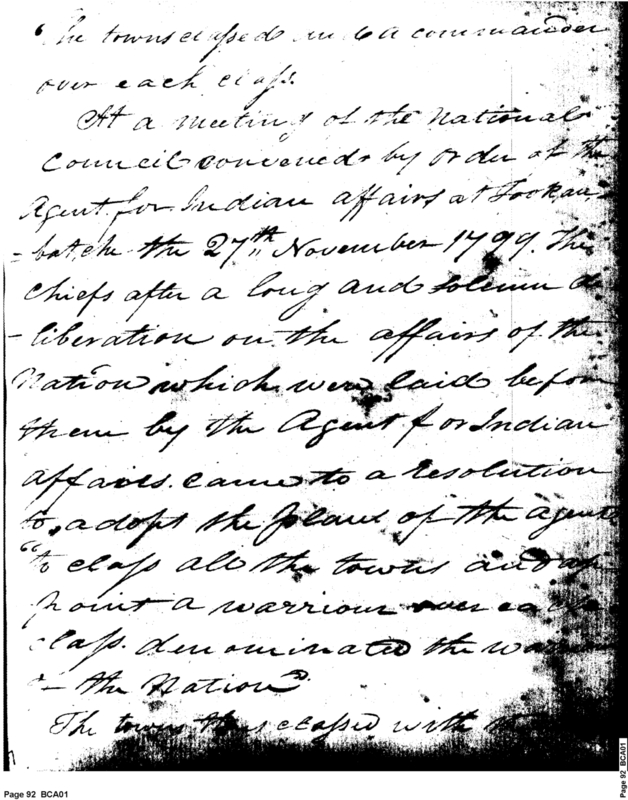 The towns classed and a commander
over each class.
At a meeting of the National
Council convened by order of the
Agent for Indian affairs at Tookau
-batche the 27th November 1799. The
Chiefs after a long and solemn de
-liberation on the affairs of the
Nation which were laid before
them by the Agent for Indian
affairs. came to a resolution
to adopt the plan of the agent
"to class all the towns and ap
point a warriour over each
class. denominated the warriour
of the Nation"
The towns thus classed with
Page 92 BCA01
Page 92 BCA01